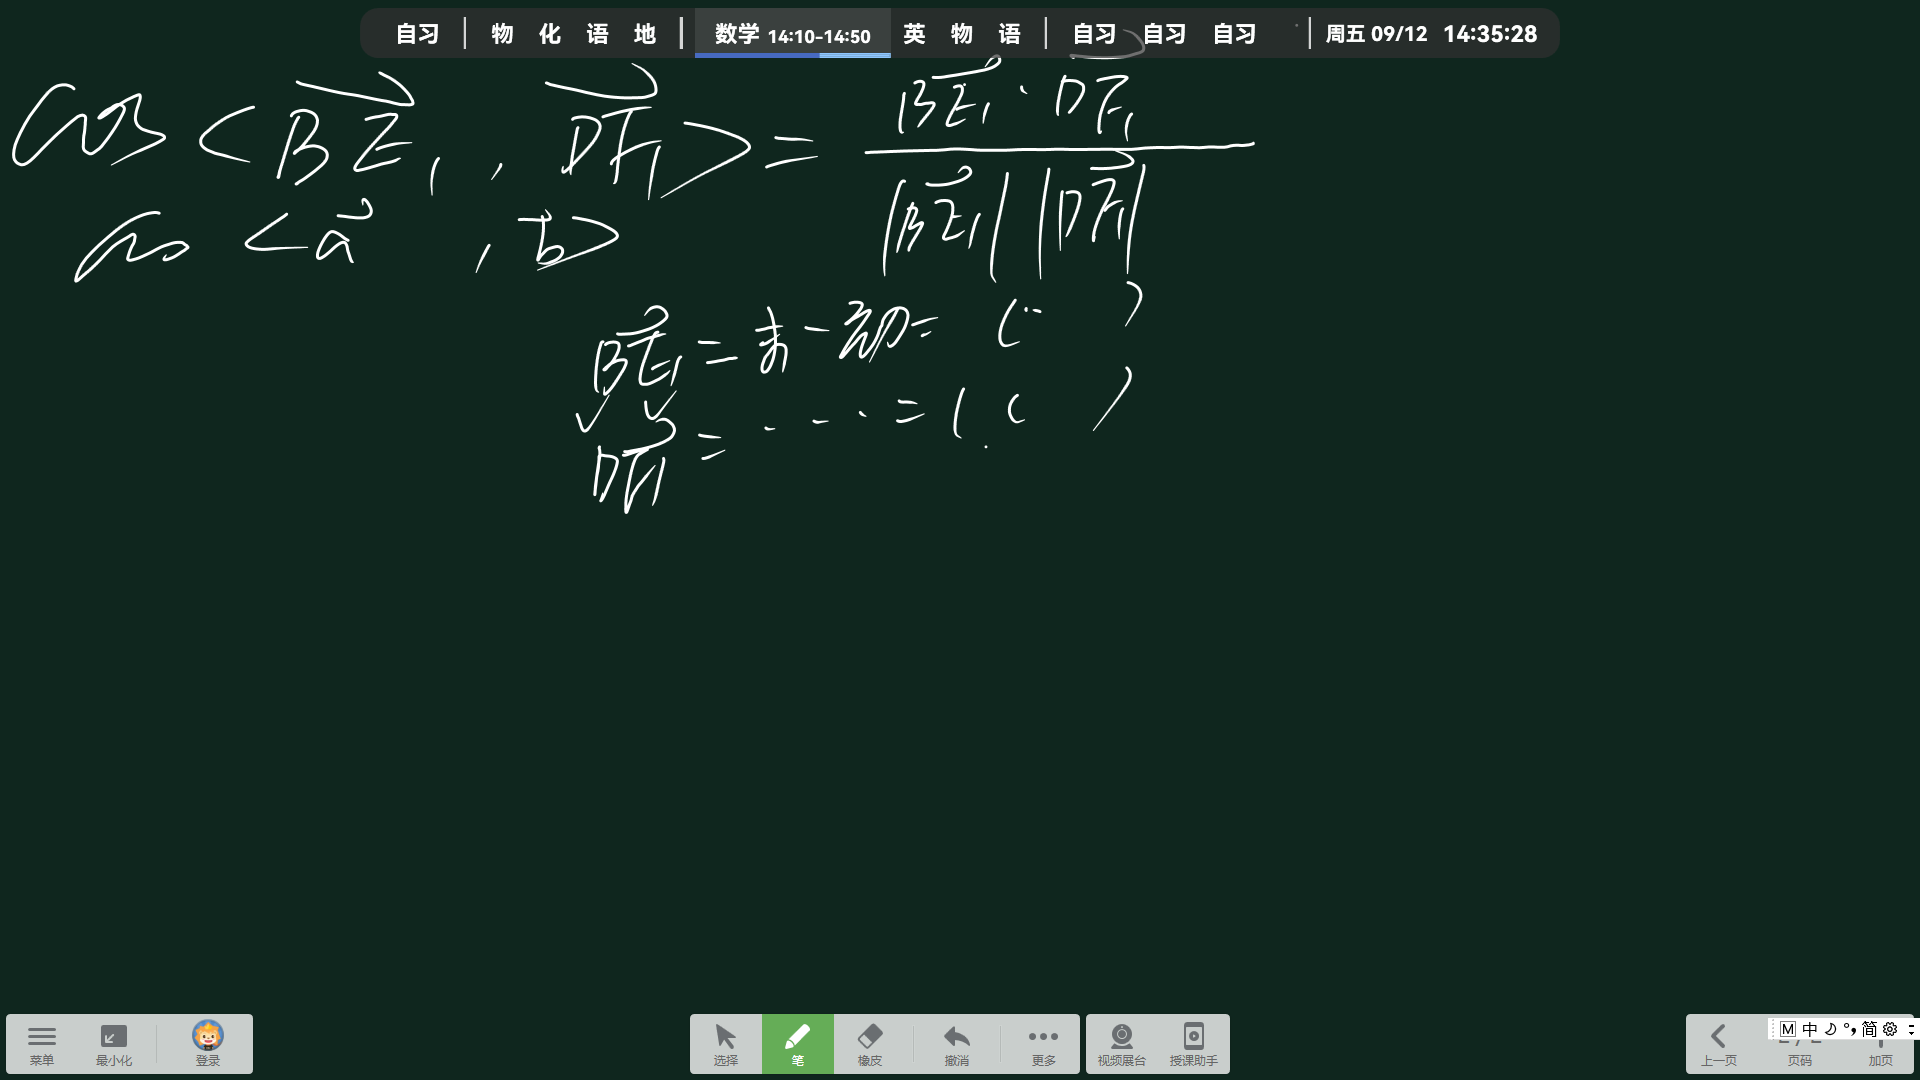 自习 | 物 化 语 地 | 数学 14:10-14:50 英 物 语 | 自习 自习 自习 | 周五 09/12 14:35:28
cos<BE₁, DF₁> = BE₁·DF₁ / |BE₁||DF₁|
cos<a, b>
BE₁ = 末-初 = ( )
DF₁ = ... = ( )
菜单 最小化 登录 选择 笔 橡皮 撤消 更多 视频展台 授课助手 上一页 页码 加页
M 中 简